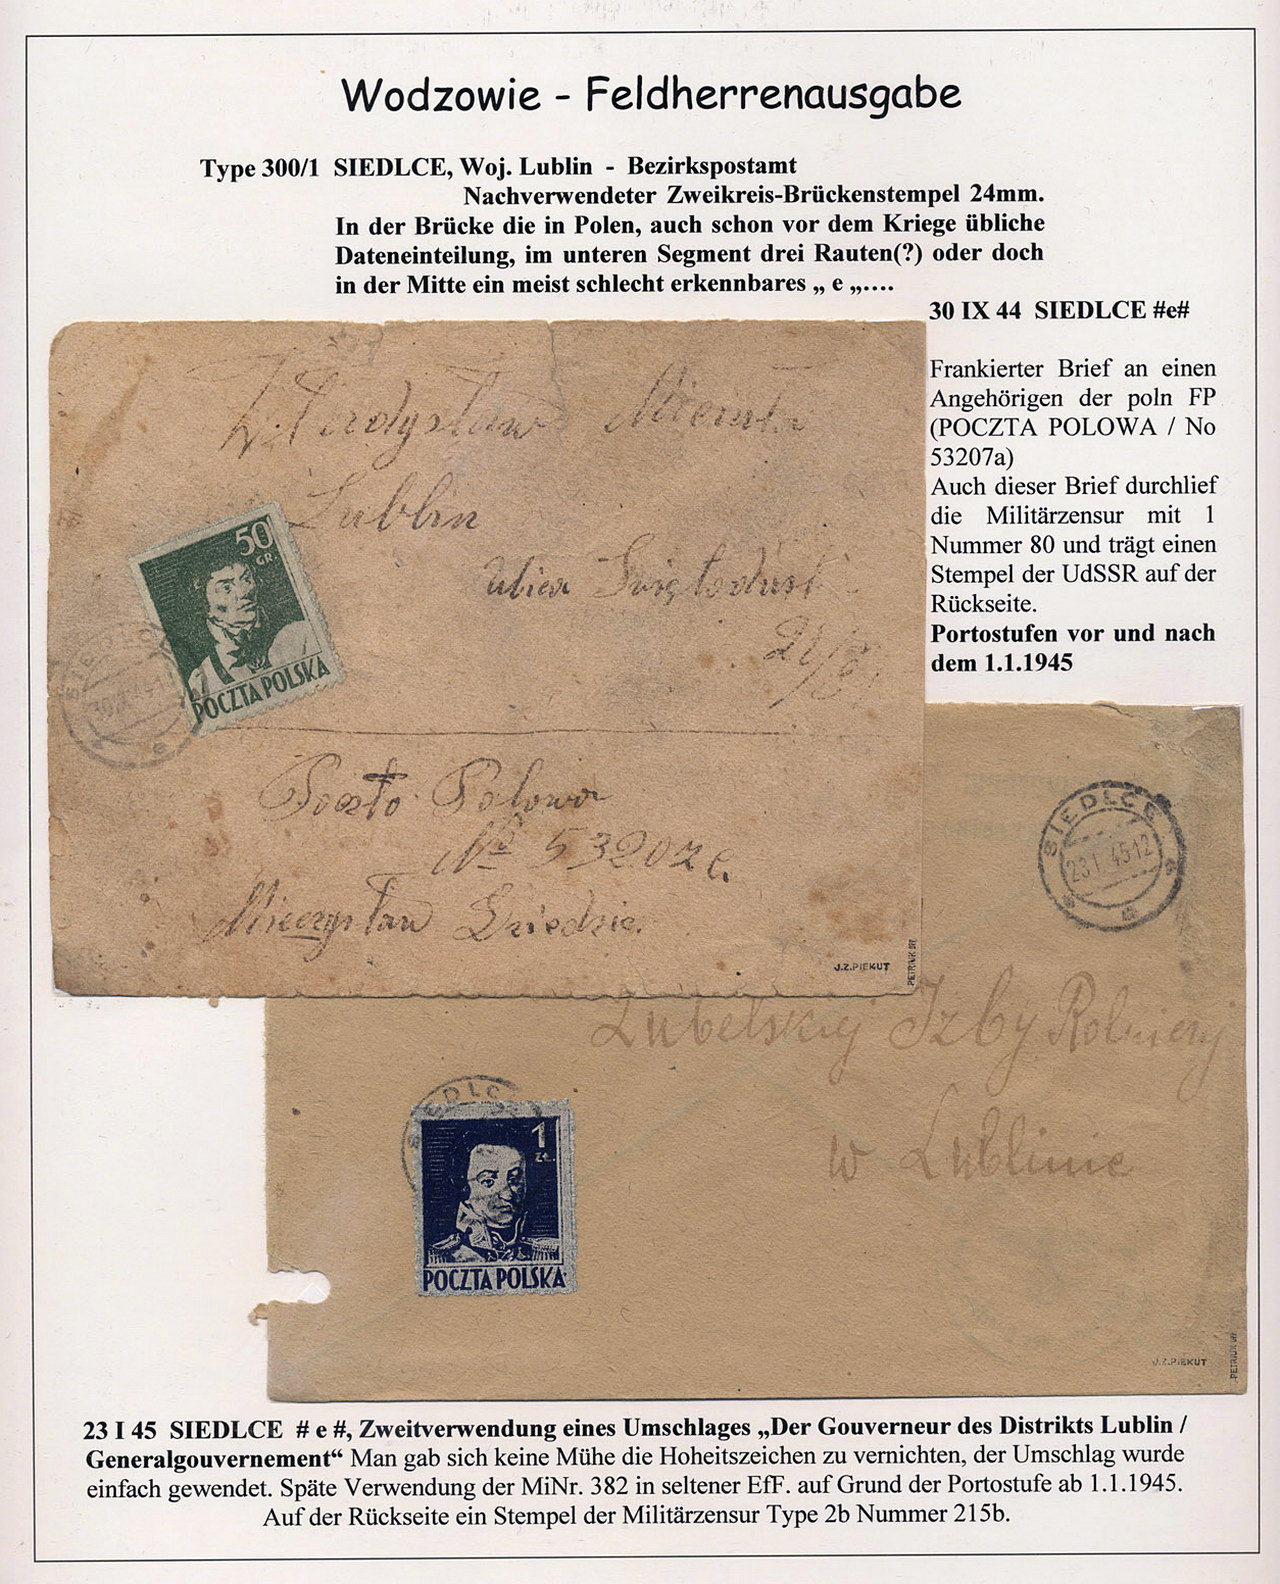 Wodzowie - Feldherrenausgabe
Type 300/1 SIEDLCE, Woj. Lublin - Bezirkspostamt
Nachverwendeter Zweikreis-Brückenstempel 24mm.
In der Brücke die in Polen, auch schon vor dem Kriege übliche
Dateneinteilung, im unteren Segment drei Rauten(?) oder doch
in der Mitte ein meist schlecht erkennbares „ e „….
30 IX 44 SIEDLCE #e#
Frankierter Brief an einen
Angehörigen der poln FP
(POCZTA POLOWA / No
53207a)
Auch dieser Brief durchlief
die Militärzensur mit 1
Nummer 80 und trägt einen
Stempel der UdSSR auf der
Rückseite.
Portostufen vor und nach
dem 1.1.1945
Lublin
50
GR
POCZTA POLSKA
Poczto Polowa
No 53207
Mieczysław
J.Z.PIEKUT
SIEDLCE
23 I 45 12
Lubelskiej Izby Rolniczej
w Lublinie
SIEDLC
1
ZŁ.
POCZTA POLSKA
J.Z.PIEKUT
23 I 45 SIEDLCE # e #, Zweitverwendung eines Umschlages „Der Gouverneur des Distrikts Lublin /
Generalgouvernement“ Man gab sich keine Mühe die Hoheitszeichen zu vernichten, der Umschlag wurde
einfach gewendet. Späte Verwendung der MiNr. 382 in seltener EfF. auf Grund der Portostufe ab 1.1.1945.
Auf der Rückseite ein Stempel der Militärzensur Type 2b Nummer 215b.